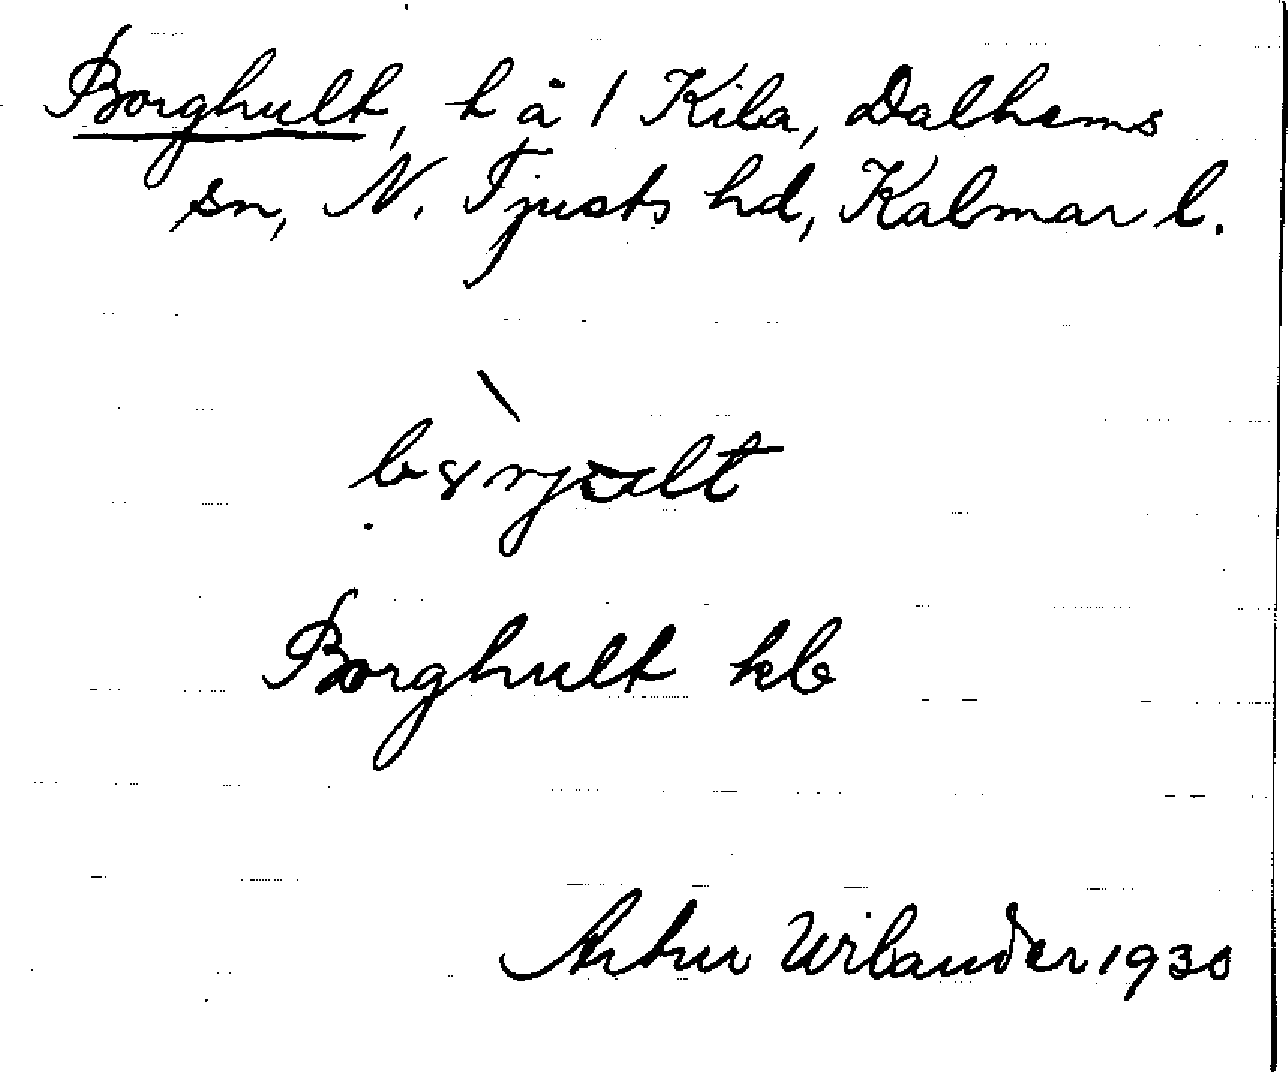 Borghult, t å 1 Kila, Dalhems
sn, N. Tjusts hd, Kalmar l.
Borghult kb
Artur Wilander 1930